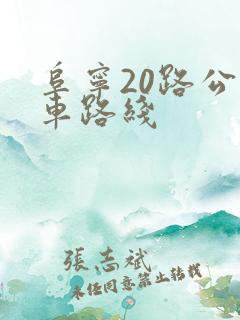 阜寧20路公
車路綫
張志斌
未经同意禁止转载